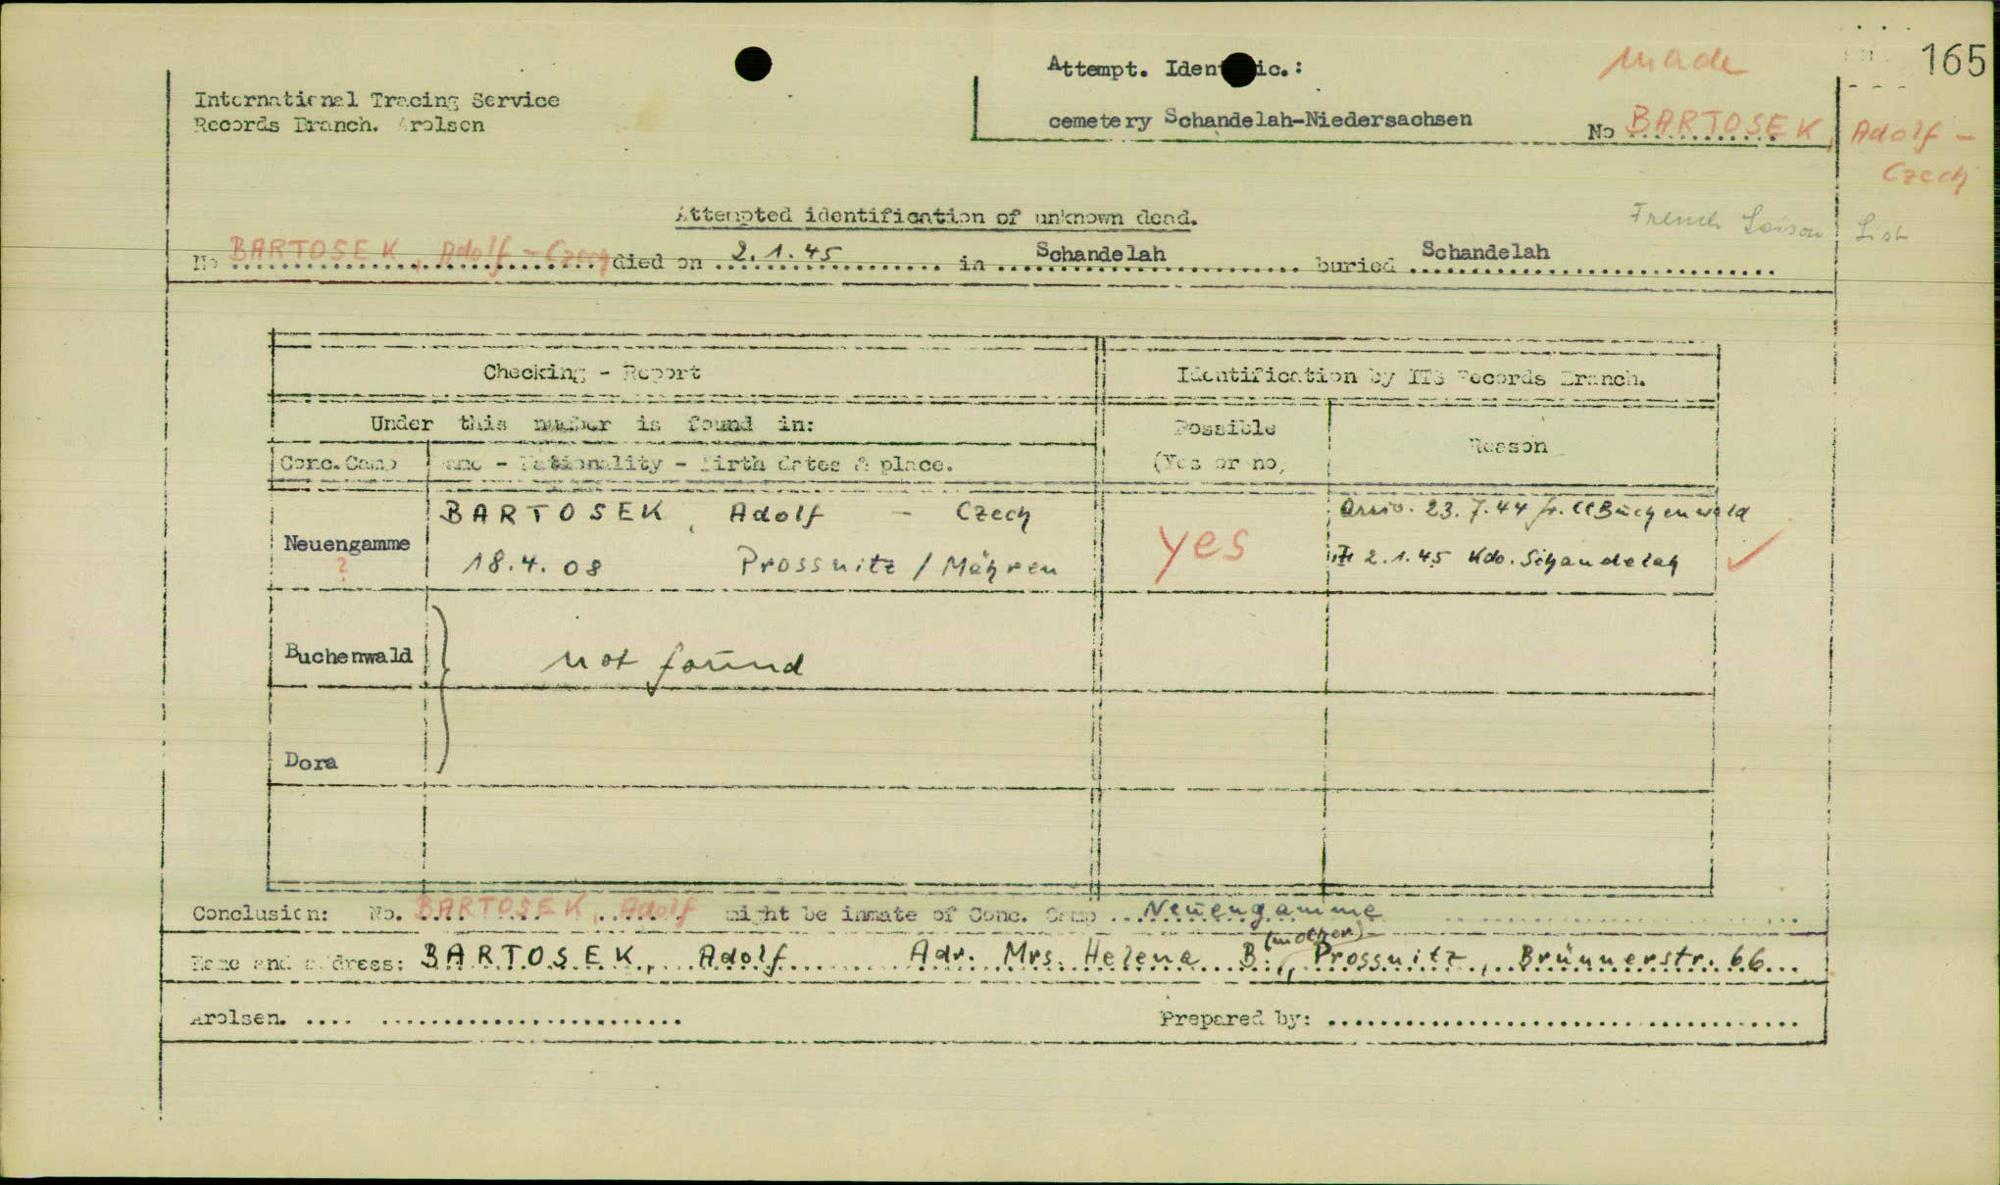 165
Attempt. Identific.: made
International Tracing Service
Records Branch. Arolsen
cemetery Schandelah-Niedersachsen No BARTOSEK, Adolf -
Czech
Attempted identification of unknown dead.
French Laison List
No BARTOSEK, Adolf - Czech died on 2.1.45 in Schandelah buried Schandelah
Checking - Report
Identification by ITS Records Branch.
Under this number is found in:
Possible
(Yes or no,
Reason
Conc.Camp
Name - Nationality - Birth dates & place.
Neuengamme
?
BARTOSEK, Adolf - Czech
18.4.08 Prossnitz / Mähren
yes
Arriv. 23.7.44 fr. CC Buchenwald
2.1.45 Kdo. Schandelah ✓
Buchenwald
not found
Dora
Conclusion: No. BARTOSEK, Adolf might be inmate of Conc. Camp Neuengamme
(mother)
Name and address: BARTOSEK, Adolf Adr. Mrs. Helena B., Prossnitz, Brünnerstr. 66
Arolsen. .... ........................ Prepared by: ....................................